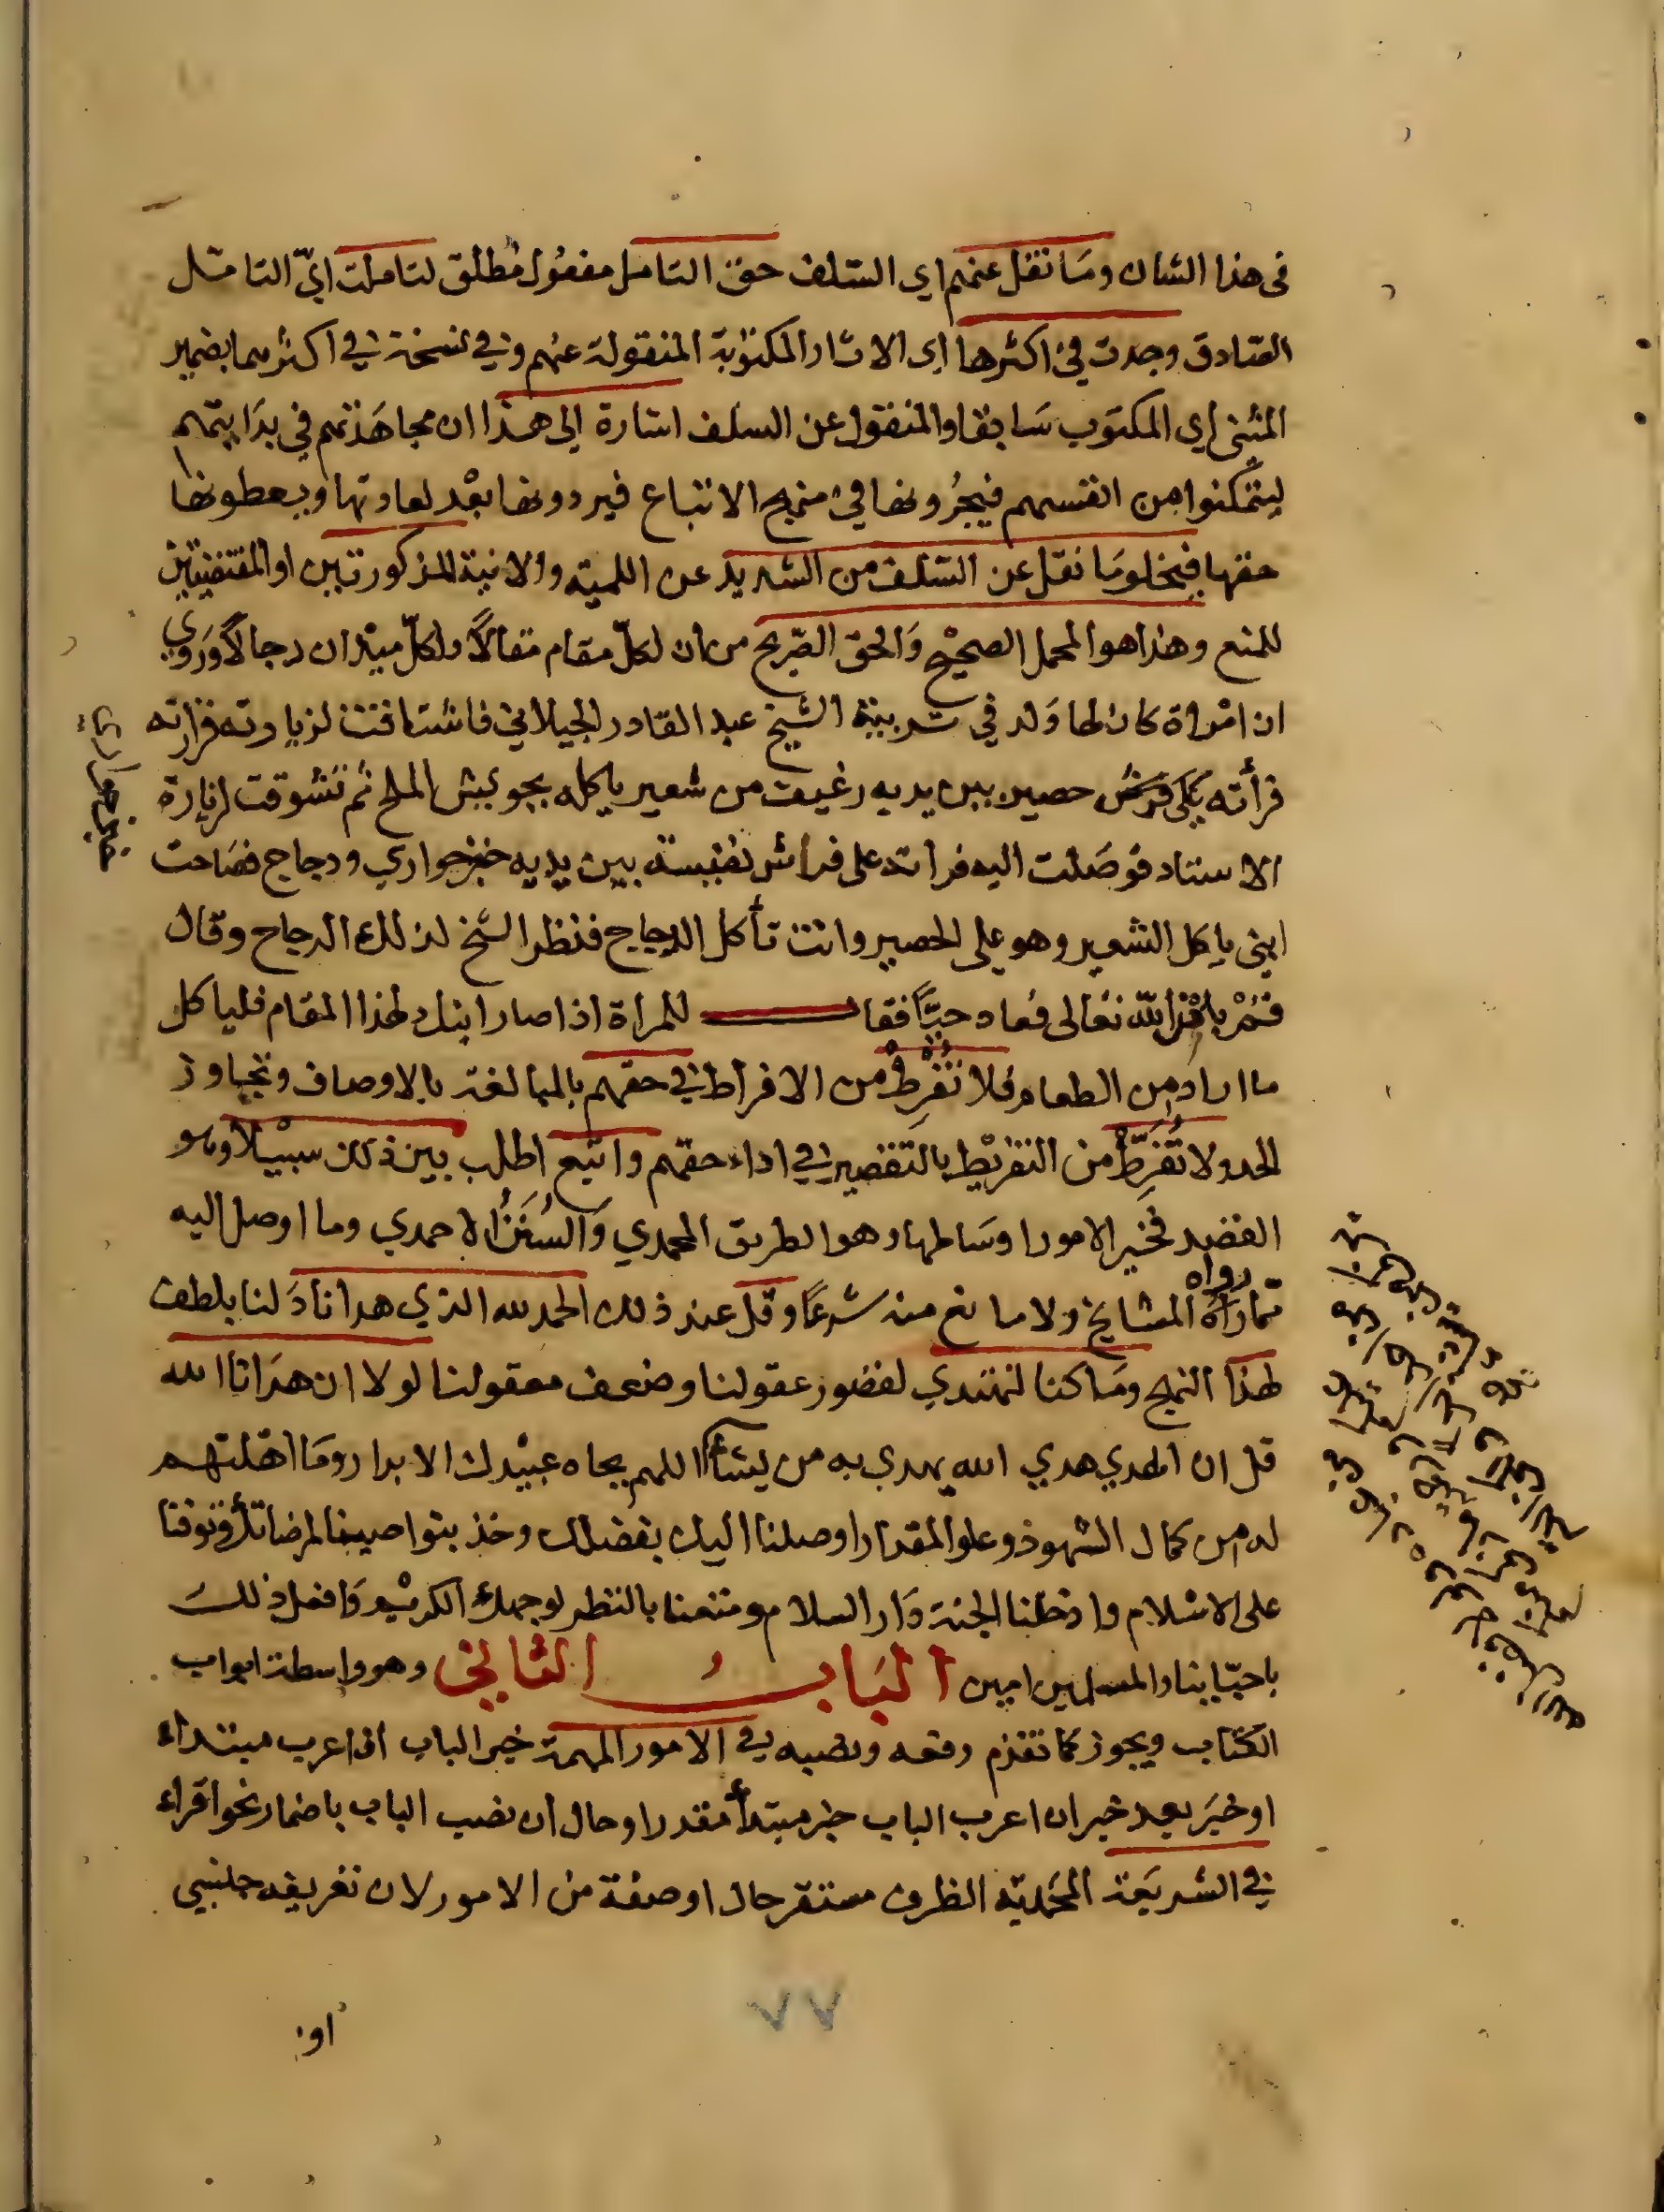 في هذا الشان وما نقل عنهم اي السلف حق التامل مفعول مطلق لتاملت اي التامل
الصادق وجدت في اكثرها اي الاثار المكتوبة المنقولة عنهم وفي نسخة في اكثرهما بضمير
المثنى اي المكتوب سابقا والمنقول عن السلف اشارة الى هذا ان مجاهدتهم في بدايتهم
ليتمكنوا من انفسهم فيجرونها في منهج الاتباع فيردونها بعد لعادتها ويعطونها
حقها فيخلو ما نقل عن السلف من التشديد عن اللمية والانية المذكورتين او المقتضيتين
للمنع وهذا هو المحمل الصحيح والحق الصريح من ان لكل مقام مقالا ولكل ميدان رجالا وروي
ان امراة كان لها ولد في تربية الشيخ عبد القادر الجيلاني فاشتاقت لزيارته فزارته
فرأته على فرش حصير بين يديه رغيف من شعير ياكله بجريش الملح ثم تشوقت لزيارة
الاستاد فوصلت اليه فراته على فراش نفيسة بين يديه خبز حواري ودجاج فصاحت
ابني ياكل الشعير وهو على الحصير وانت تأكل الدجاج فنظر الشيخ لذلك الدجاج وقال
قم باذن الله تعالى فعاد حيا فقال للمراة اذا صار ابنك لهذا المقام فلياكل
ما اراد من الطعام فلا تفرط من الافراط في حقهم بالمبالغة بالاوصاف وتجاوز
الحد ولا تفرط من التفريط بالتقصير في اداء حقهم واتبع اطلب بين ذلك سبيلا وهو
القصد فخير الامور اوساطها وهو الطريق المحمدي والسنن الاحمدي وما اوصل اليه
مما رآه رواه المشايخ ولا مانع منه شرعا وقل عند ذلك الحمد لله الذي هدانا دلنا بلطف
لهذا النهج وما كنا لنهتدي لقصور عقولنا وضعف معقولنا لولا ان هدانا الله
قل ان الهدي هدي الله يهدي به من يشأ اللهم بجاه عبيدك الابرار وما اهلتهم
له من كمال الشهود وعلو المقدار اوصلنا اليك بفضلك وخذ بنواصينا لمرضاتك وتوفنا
على الاسلام وادخلنا الجنة دار السلام ومتعنا بالنظر لوجهك الكريم وافعل ذلك
باحبابنا والمسلمين امين الباب الثاني وهو واسطة ابواب
الكتاب ويجوز كما تقدم رفعه ونصبه في الامور المهمة خبر الباب ان اعرب مبتداء
او خبر بعد خبر ان اعرب الباب خبر مبتدأ مقدرا وحال ان نصب الباب باضمار نحو اقراء
في الشريعة المحمدية الظرف مستقر حال او صفة من الامور لان تعريفه جنسي
او
٧٧